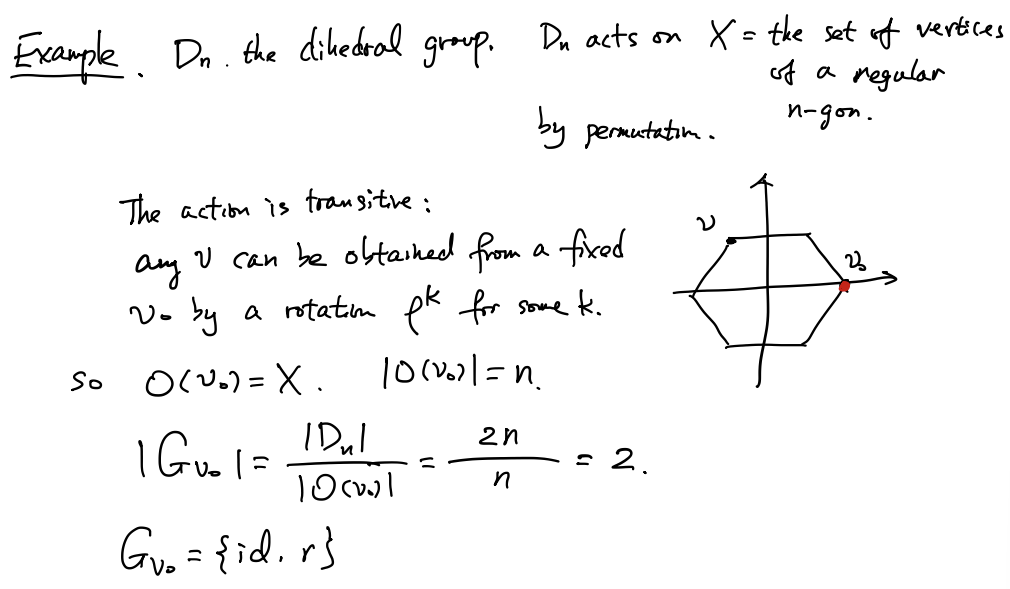 Example. Dₙ. the dihedral group. Dₙ acts on X = the set of vertices
of a regular
n-gon.
by permutation.
The action is transitive:
any v can be obtained from a fixed
v₀ by a rotation ρᵏ for some k.
v
v₀
so O(v₀) = X. |O(v₀)| = n.
|G_{v₀}| = |Dₙ| / |O(v₀)| = 2n / n = 2.
G_{v₀} = {id. r}